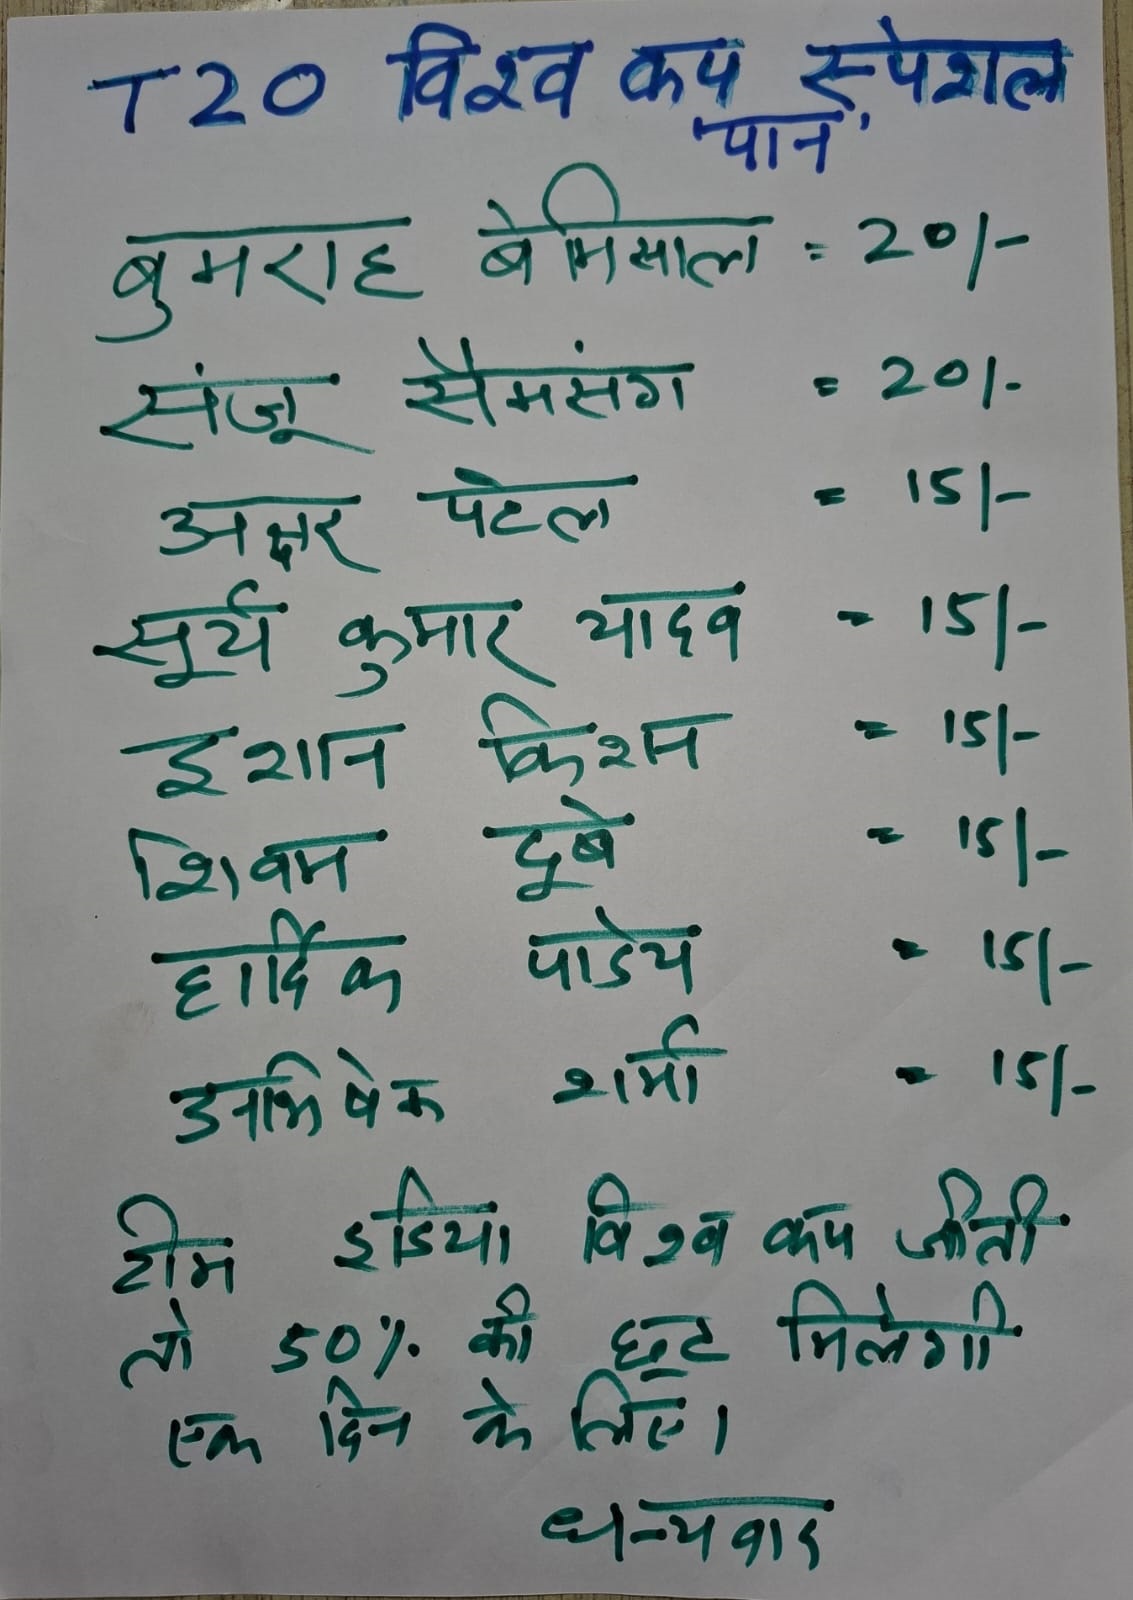 T20 विश्व कप स्पेशल
'पान'
बुमराह बेमिसाल = 20/-
संजू सैमसंग = 20/-
अक्षर पटेल = 15/-
सूर्य कुमार यादव = 15/-
इशान किशन = 15/-
शिवम दूबे = 15/-
हार्दिक पाडेय = 15/-
अभिषेक शर्मा = 15/-
टीम इडिया विश्व कप जीती
तो 50% की छूट मिलेगी
एक दिन के लिए।
धन्यवाद